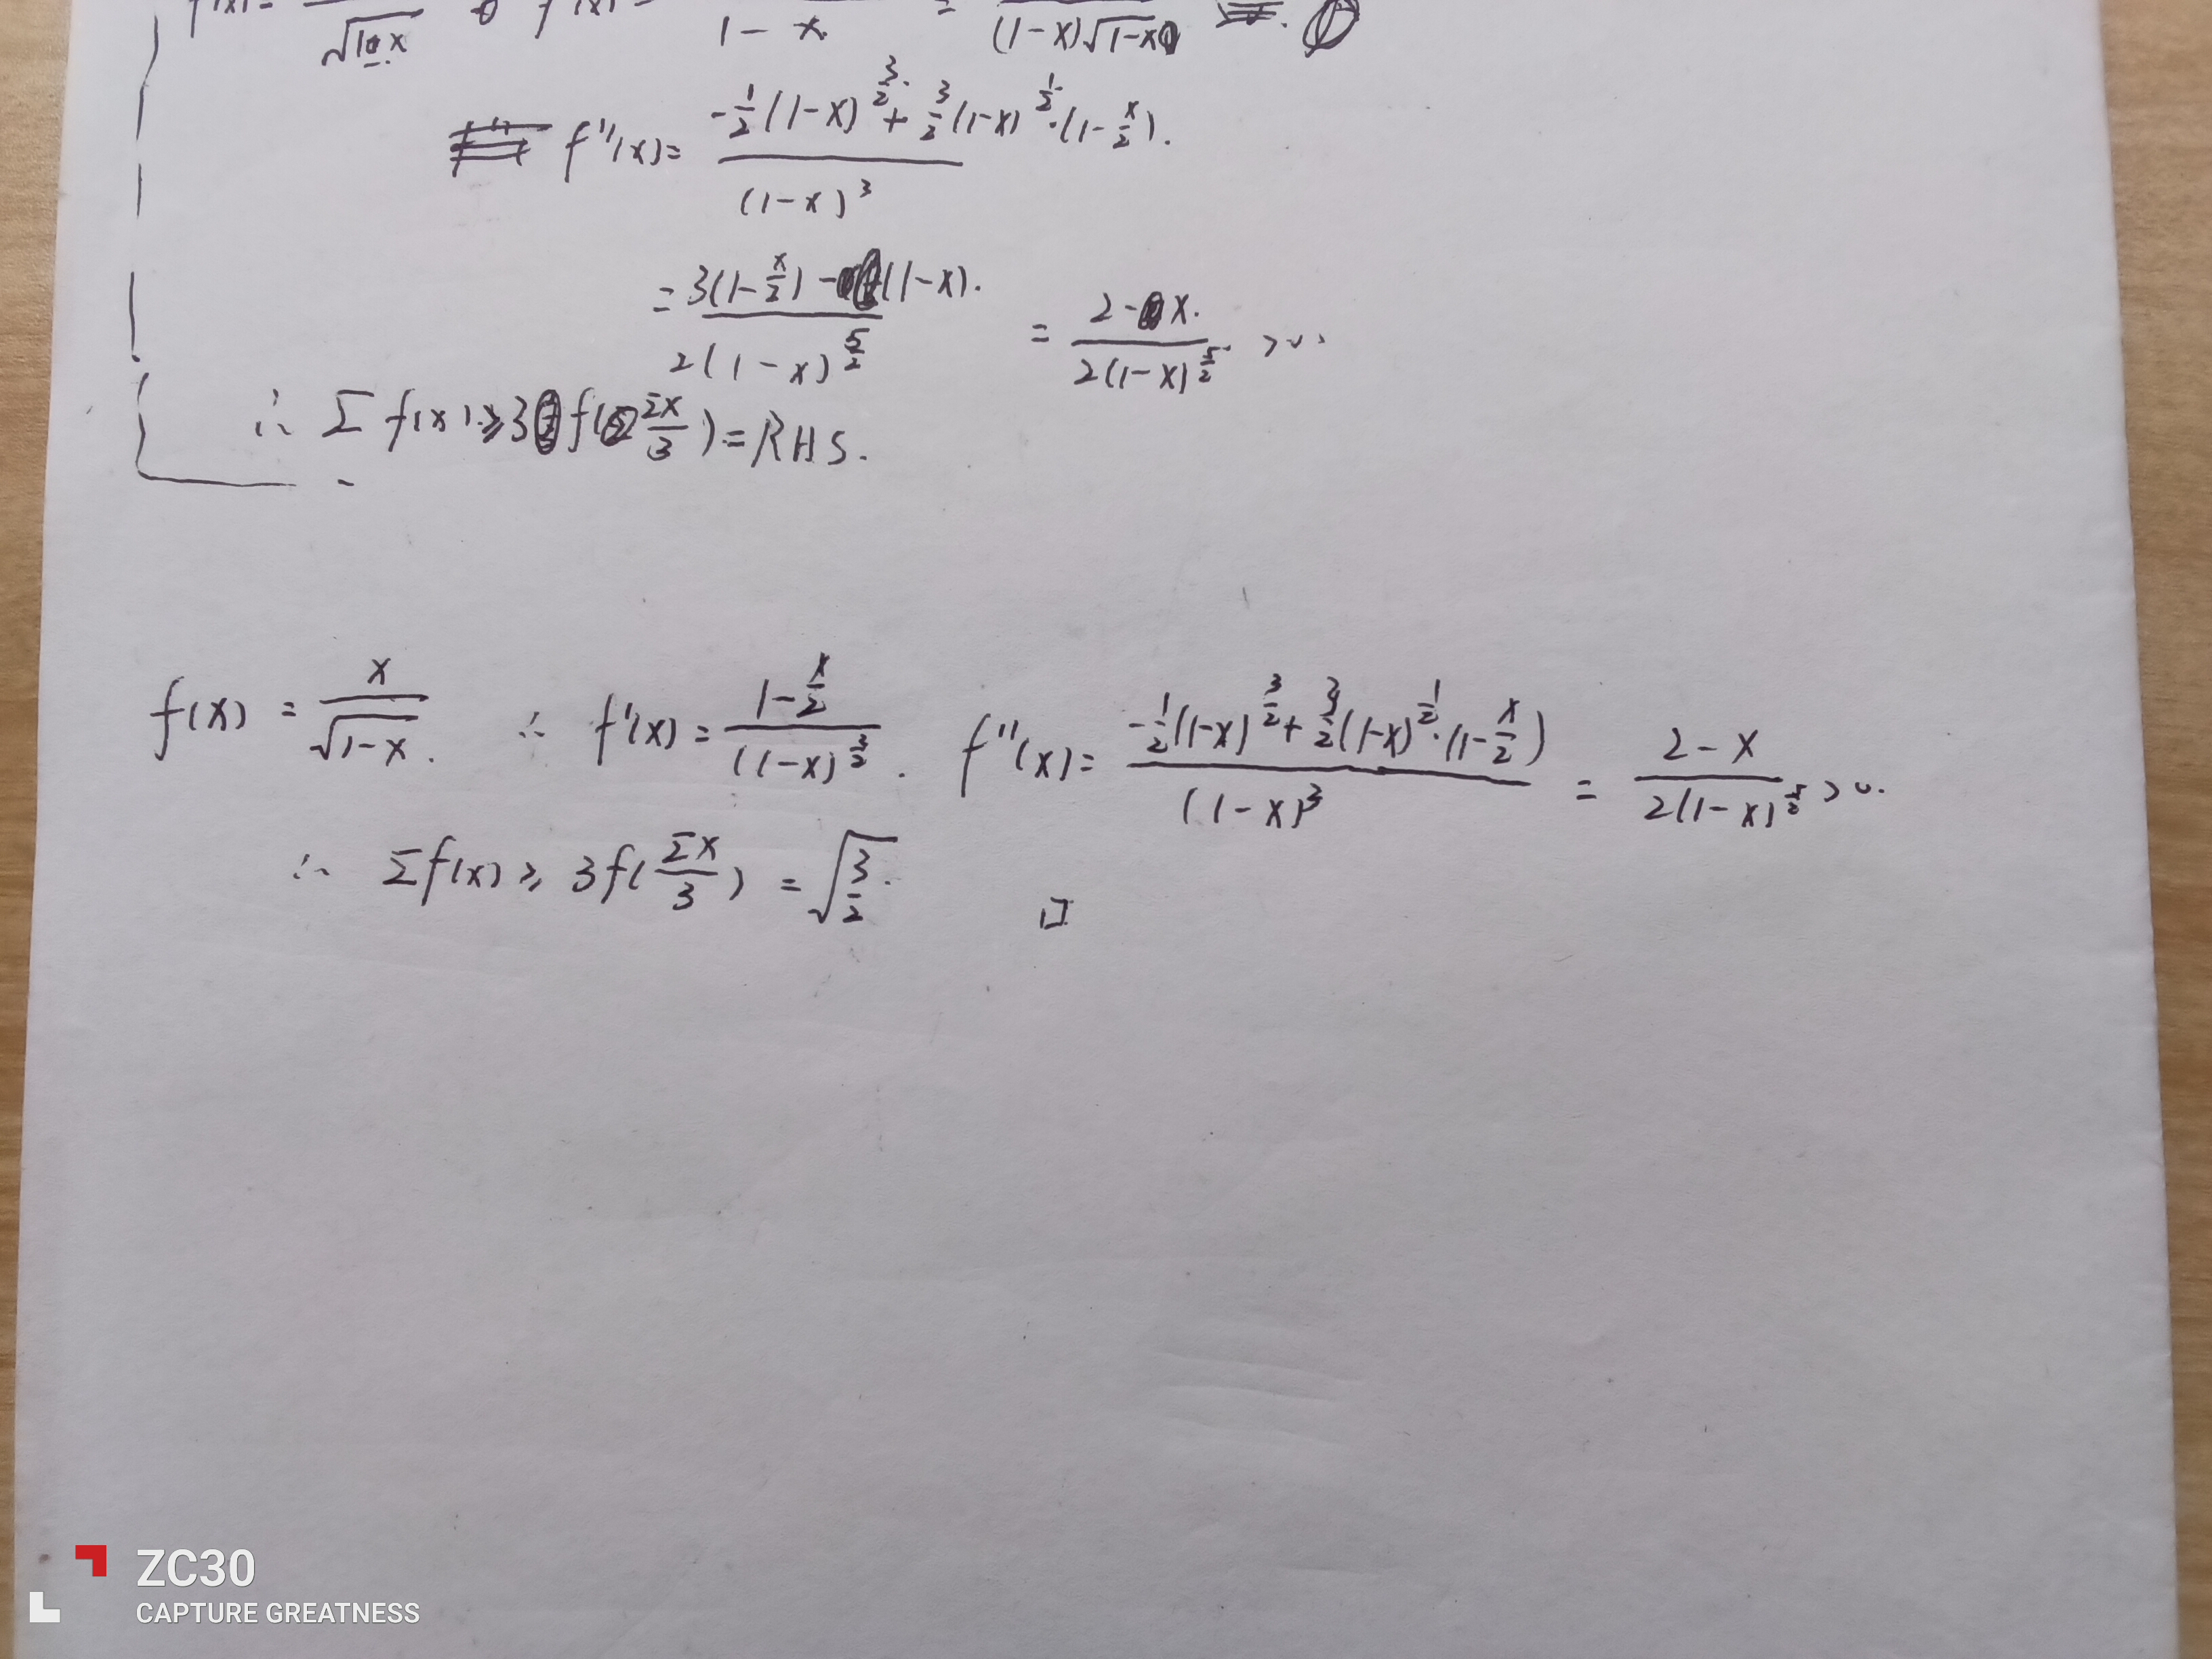 f(x)= √1-x f'(x)= 1-x = (1-x)√1-x
f''(x)= -1/2(1-x)^3/2 + 3/2(1-x)^1/2·(1-x/2). / (1-x)^3
= 3(1-x/2) - (1-x). / 2(1-x)^5/2 = 2-x. / 2(1-x)^5/2 >0.
∴ Σf(x)≥3f(Σx/3)=RHS.
f(x) = x/√1-x. ∴ f'(x) = 1-x/2 / (1-x)^3/2. f''(x)= -1/2(1-x)^3/2 + 3/2(1-x)^1/2·(1-x/2) / (1-x)^3 = 2-x / 2(1-x)^5/2 >0.
∴ Σf(x)≥ 3f(Σx/3) = √3/2. □
ZC30
CAPTURE GREATNESS